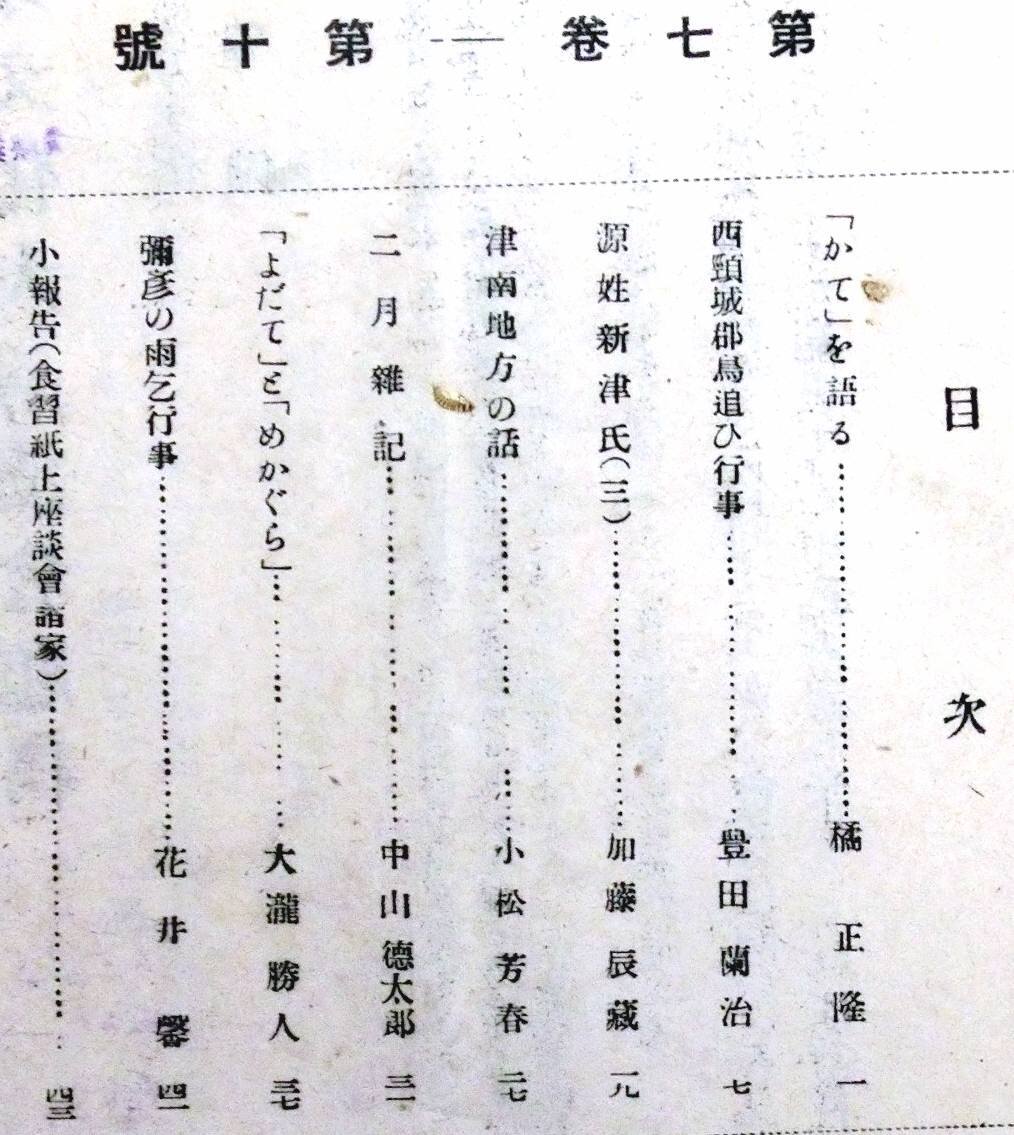 第七卷――第十號
目次
「かて」を語る……橘正隆 一
西頸城郡鳥追ひ行事……豊田蘭治 七
源姓新津氏(三)……加藤辰藏 一九
津南地方の話……小松芳春 二七
二月雜記……中山德太郎 三一
「よだて」と「めかぐら」……大瀧勝人 三七
彌彥の雨乞行事……花井馨 四一
小報告(食習紙上座談會諸家)……四三